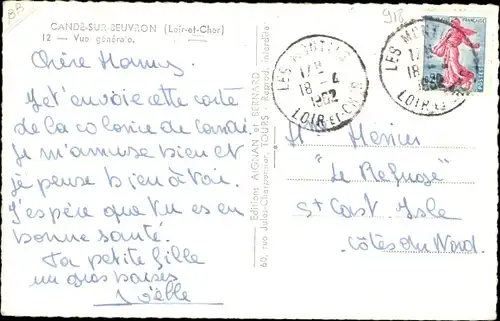 CANDÉ-SUR-BEUVRON (Loir-et-Cher)
12 — Vue générale.
918
Chère Mamus,
Je t'envoie cette carte
de la colonie de
Je m'amuse bien et
je pense bien à toi.
J'espère que tu es en
bonne santé.
Ta petite fille
un gros baiser
Joëlle
Editions AIGNAN et BERNARD
60, rue Jules-Charpentier, TOURS - Reprod. interdite
LES MONTILS
17H
18 - 4
1962
LOIR-ET-CHER
LES MONTILS
17H
18 - 4
1962
LOIR-ET-CHER
"Le Refuge"
St Cast Isle
Côtes du Nord.